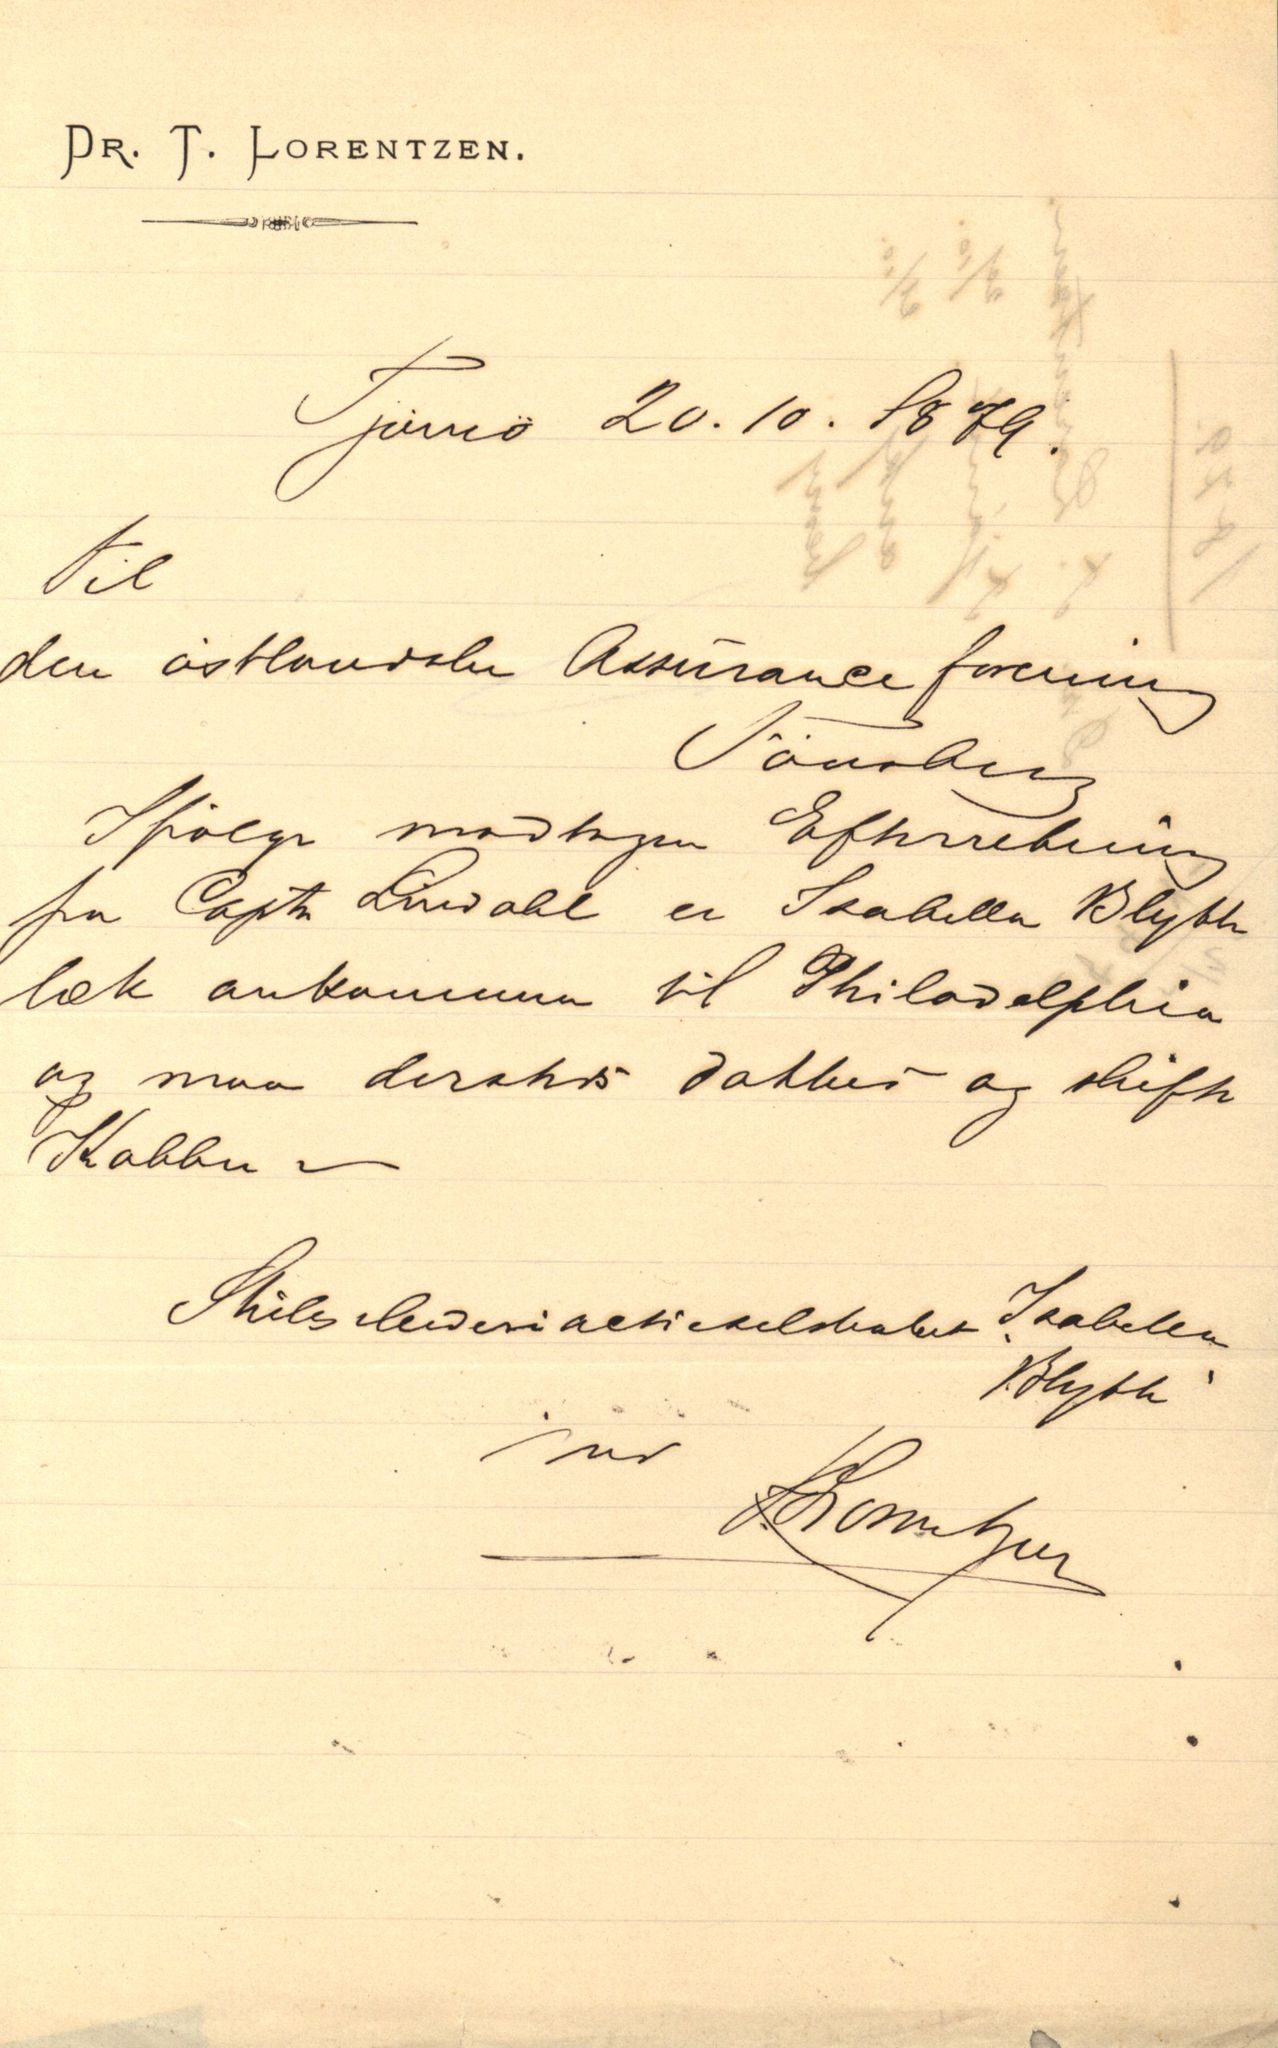 DR. T. LORENTZEN.
Tjömö 20.10.1879.
Til
den östlandske Assuranceforening
Tönsberg
Ifölge modtagen Efterretning
fra Captn Lindahl er Isabella Blyth
læk ankommen til Philadelphia
og maa dersteds dokkes og skifte
Kobber –
Skibsrederiactieselskabet „Isabella
Blyth“
ved
T. Lorentzen